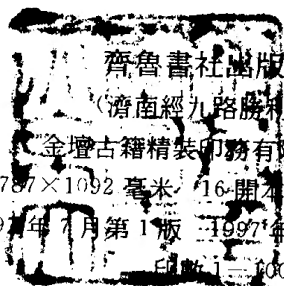 齊魯書社出版
（濟南經九路勝利
金壇古籍精裝印務有限
787×1092毫米 16開本
年7月第1版 1997年
印數1—100